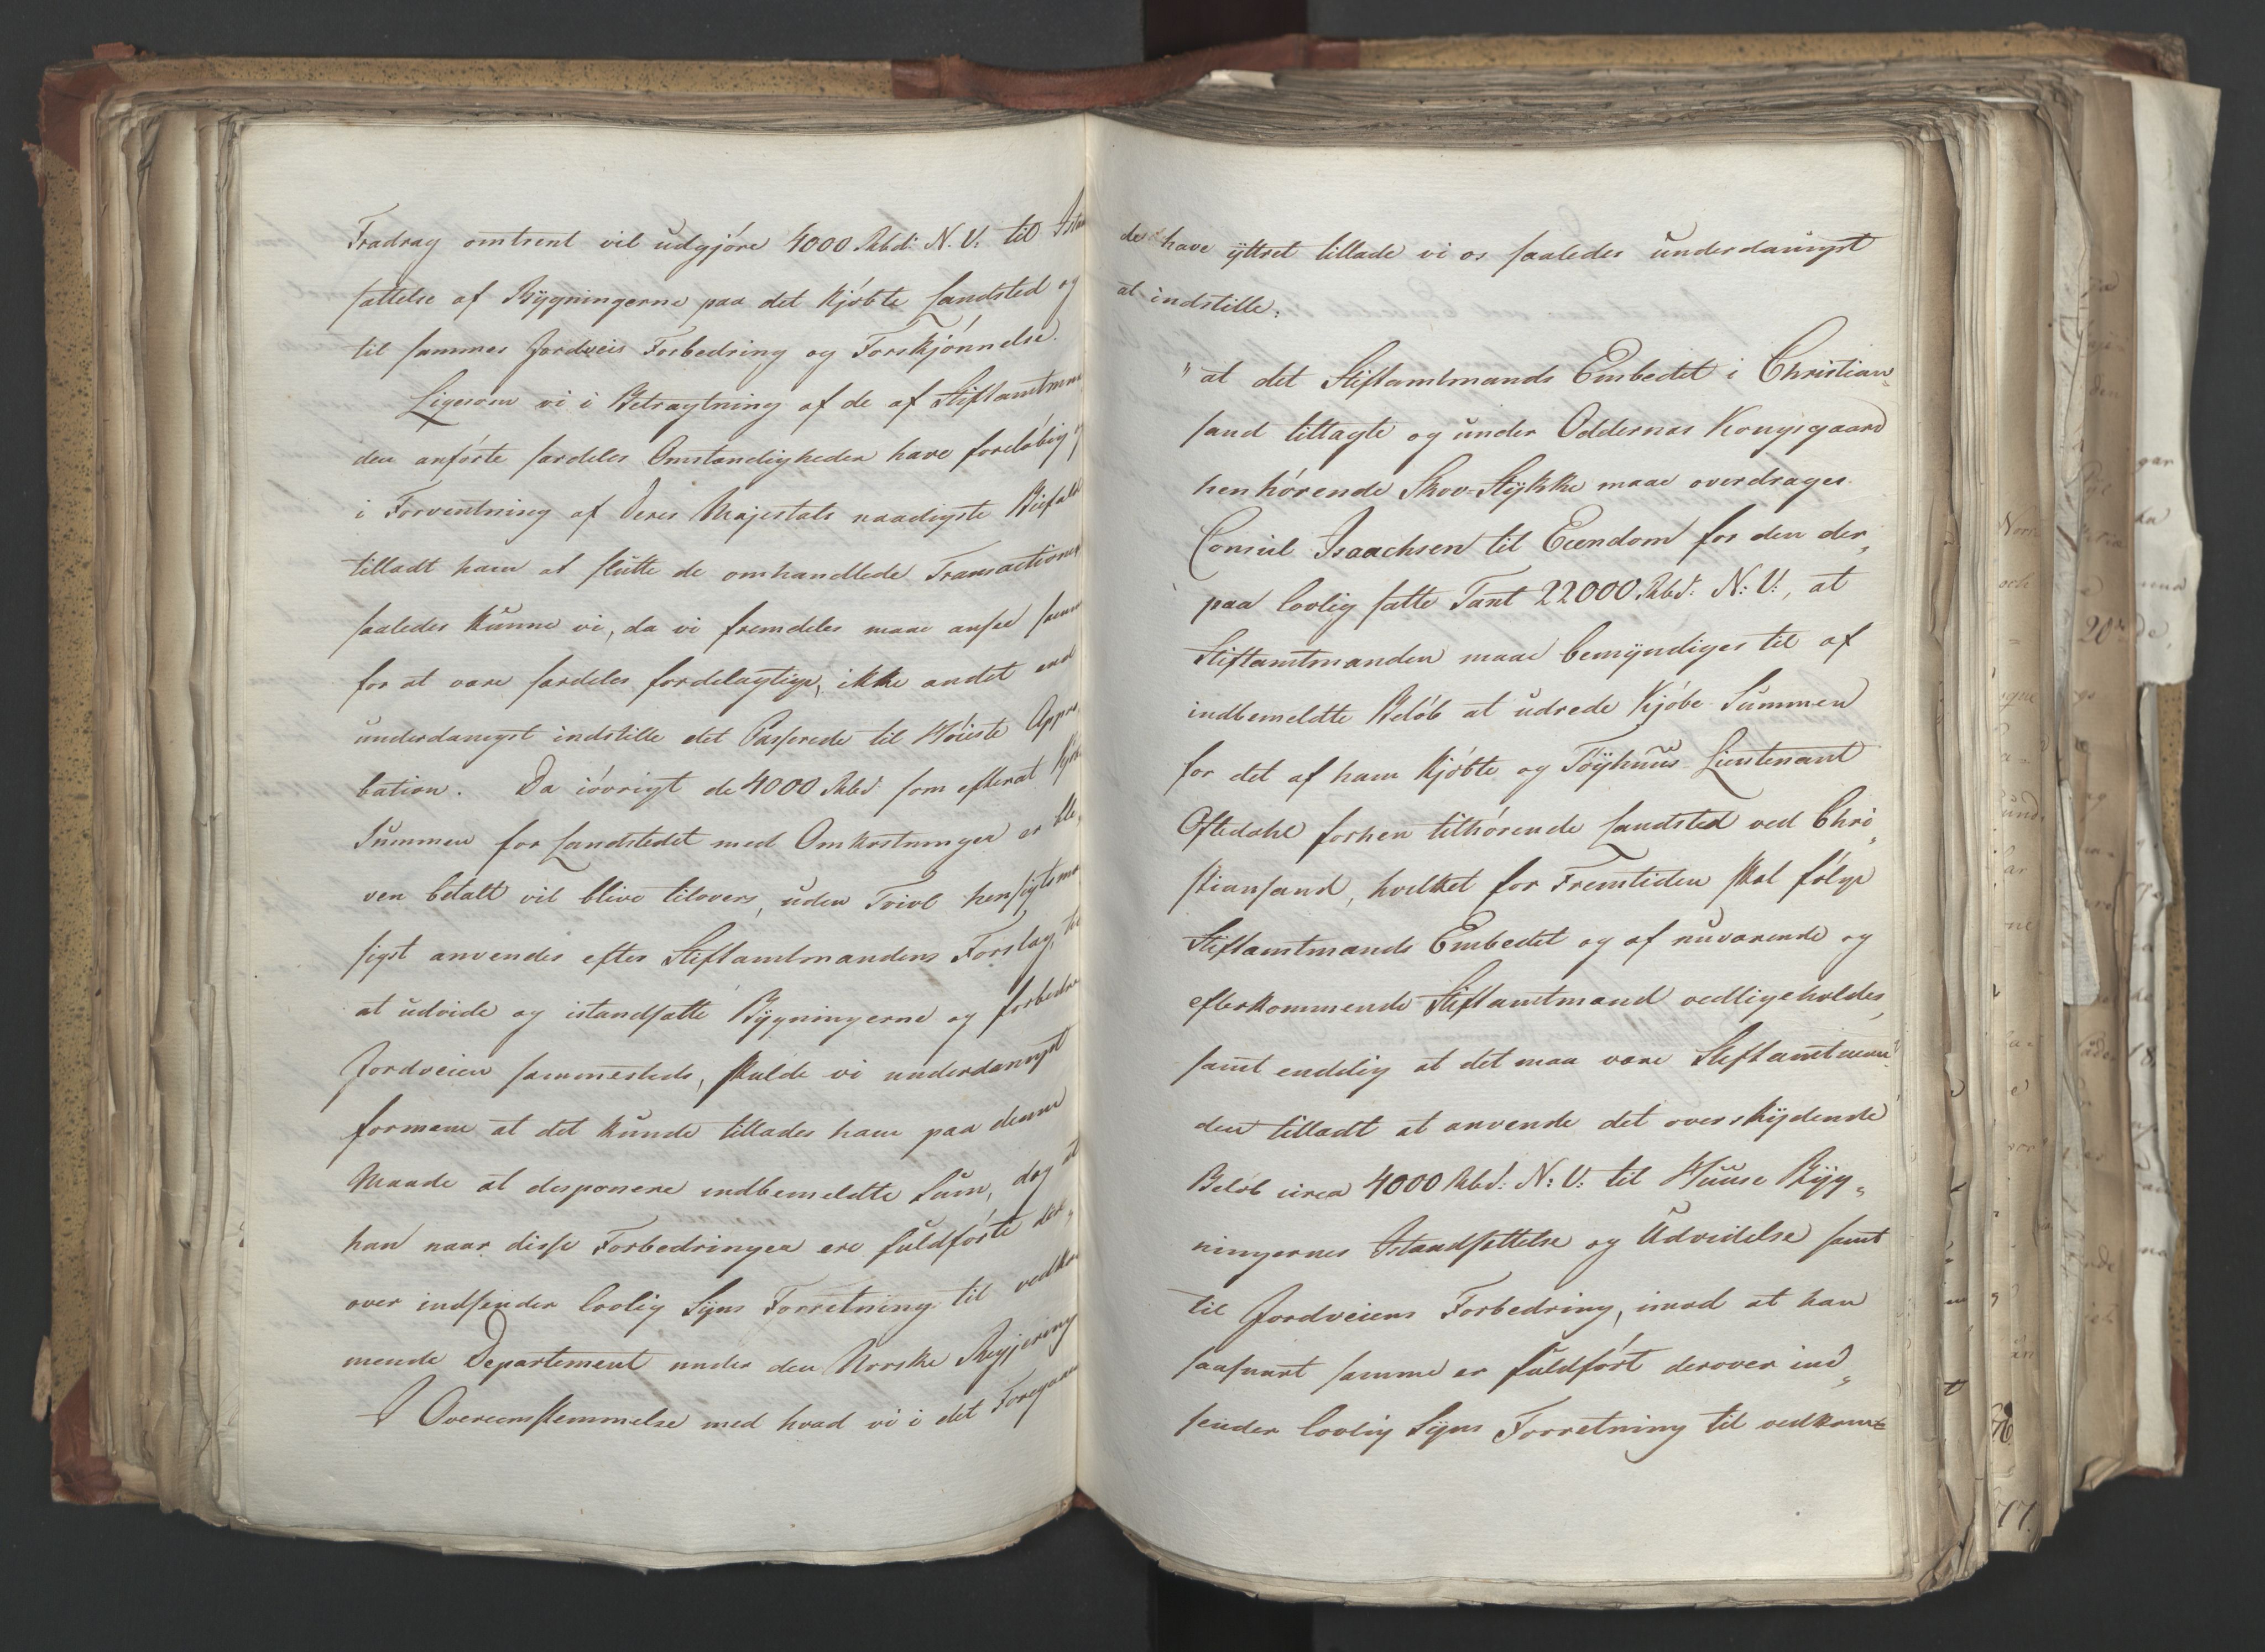 Fradrag omtrent vil udgjøre 4000 Rbd: N. V: til Istan
sættelse af Bygningerne paa det kjøbte Landsted og
til sammes Jordveis Forbedring og Forskjønnelse.
Ligesom vi i Betragtning af de af Stiftamtman
den anførte særdeles Omstændigheder have foreløbig og
i Forventning af Deres Majestæts naadigste Bifald
tilladt ham at slutte de omhandlede Transactioner
saaledes kunne vi, da vi fremdeles maae ansee samme
for at være særdeles fordelagtige, ikke andet end
underdanigst indstille det Passerede til Høieste Appro
bation. Da iøvrigt de 4000 Rbd som efterat Kjøbe
Summen for Landstedet med Omkostninger er ble,
ven betalt vil blive tilovers, uden Tvivl hensigtsmæ
sigst anvendes efter Stiftamtmandens Forslag, til
at udvide og istandsætte Bygningerne og forbedre
Jordveien sammesteds, skulde vi underdanigst
formene at det kunde tillades ham paa denne
Maade at disponere indbemeldte Sum, dog at
han naar disse Forbedringer ere fuldførte der,,
over indsender lovlig Syns Forretning til vedkom
mende Departement under den Norske Regjering
I Overeensstemmelse med hvad vi i det Foregaaen
de have yttret tillade vi os saaledes underdanigst
at indstille:
"at det Stiftamtmands Embedet i Christian,,
sand tillagte og under Oddernæs Kongsgaard
henhørende Skov-Stykke maae overdrages
Consul Isaachsen til Eiendom for den der,,
paa lovlig satte Taxt 22000 Rbd: N: V:, at
Stiftamtmanden maae bemyndiges til af
indbemeldte Beløb at udrede Kjøbe-Summen
for det af ham kjøbte og Tøyhuus-Lieutenant
Oftedahl forhen tilhørende Landsted ved Chri,,
stiansand, hvilket for Fremtiden skal følge
Stiftamtmands Embedet og af nuværende og
efterkommende Stiftamtmand vedligeholdes,
samt enddelig at det maa være Stiftamtman,,
den tilladt at anvende det overskydende
Beløb circa 4000 Rbd: N: V: til Huuse Byg,,
ningernes Istandsættelse og Udvidelse samt
til Jordveiens Forbedring, imod at han
saasnart samme er fuldført derover ind,,
sender lovlig Syns Forretning til vedkom=